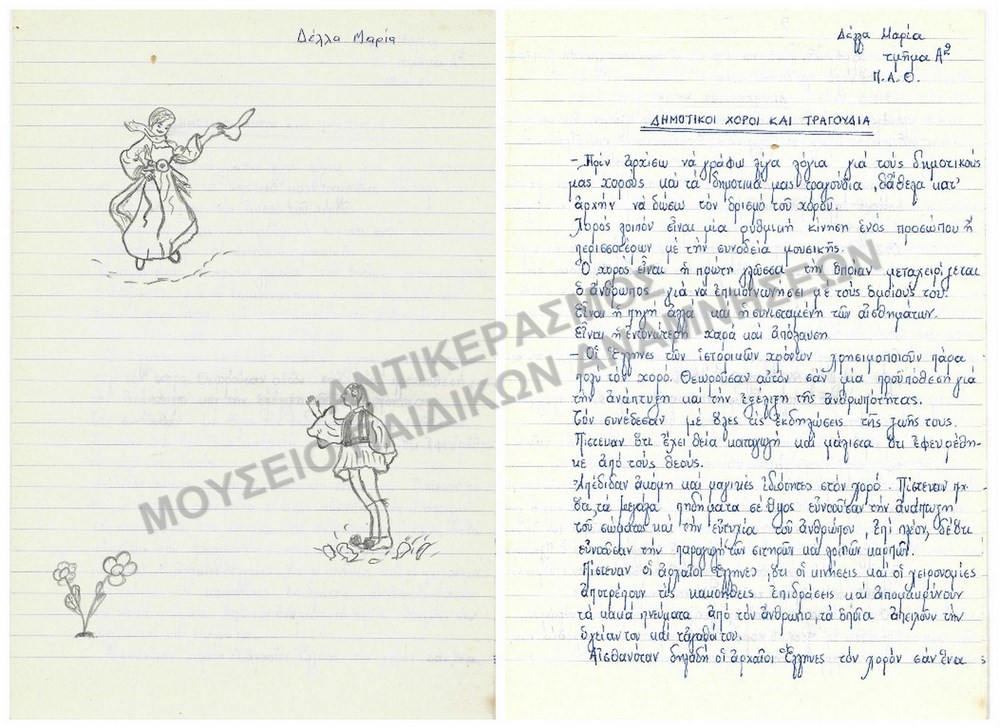 Δέλλα Μαρία
Δέλλα Μαρία
τμῆμα Α2
Π.Α.Θ.
ΔΗΜΟΤΙΚΟΙ ΧΟΡΟΙ ΚΑΙ ΤΡΑΓΟΥΔΙΑ
– Πρίν ἀρχίσω νά γράφω λίγα λόγια γιά τούς δημοτικούς
μας χορούς καί τά δημοτικά μας τραγούδια, θἄθελα κατ'
ἀρχήν νά δώσω τόν ὁρισμό τοῦ χοροῦ.
Χορός λοιπόν εἶναι μία ρυθμική κίνηση ἑνός προσώπου ἤ
περισσοτέρων μέ τήν συνοδεία μουσικῆς.
Ὁ χορός εἶναι ἡ πρώτη γλῶσσα τήν ὁποίαν μεταχειρίζεται
ὁ ἄνθρωπος γιά νά ἐπικοινωνήσει μέ τούς ὁμοίους του.
Εἶναι ἡ πηγή ἀλλά καί ἡ συνισταμένη τῶν αἰσθημάτων.
Εἶναι ἡ ἐντονώτερη χαρά καί ἀπόλαυση.
– Οἱ Ἕλληνες τῶν ἱστορικῶν χρόνων χρησιμοποιοῦν πάρα
πολύ τόν χορό. Θεωροῦσαν αὐτόν σάν μία προϋπόθεση γιά
τήν ἀνάπτυξη καί τήν ἐξέλιξη τῆς ἀνθρωπότητας.
Τόν συνέδεσαν μέ ὅλες τίς ἐκδηλώσεις τῆς ζωῆς τους.
Πίστευαν ὅτι ἔχει θεία καταγωγή καί μάλιστα ὅτι ἐφευρέθη-
κε ἀπό τούς θεούς.
Ἀπέδιδαν ἀκόμη καί μαγικές ἰδιότητες στόν χορό. Πίστευαν πχ
ὅτι τά μεγάλα πηδήματα σέ ὕψος εὐνοοῦσαν τήν ἀνάπτυξη
τοῦ σώματος καί τήν εὐτυχία τοῦ ἀνθρώπου, ἐπί πλέον, δέ ὅτι
εὐνοοῦσαν τήν παραγωγή τῶν σιτηρῶν καί λοιπῶν καρπῶν.
Πίστευαν οἱ ἀρχαῖοι Ἕλληνες, ὅτι οἱ κινήσεις καί οἱ χειρονομίες
ἀποτρέπουν τίς κακοήθεις ἐπιδράσεις καί ἀπομακρύνουν
τά κακά πνεύματα ἀπό τόν ἄνθρωπο, τά ὁποῖα ἀπειλοῦν τήν
ὑγείαν του καί τἀγαθά του.
Αἰσθανόταν δηλαδή οἱ ἀρχαῖοι Ἕλληνες τόν χορόν σάν ἕνα
ΑΝΤΙΚΕΡΑΣΜΟΣ
ΜΟΥΣΕΙΟ ΠΑΙΔΙΚΩΝ ΑΝΑΜΝΗΣΕΩΝ